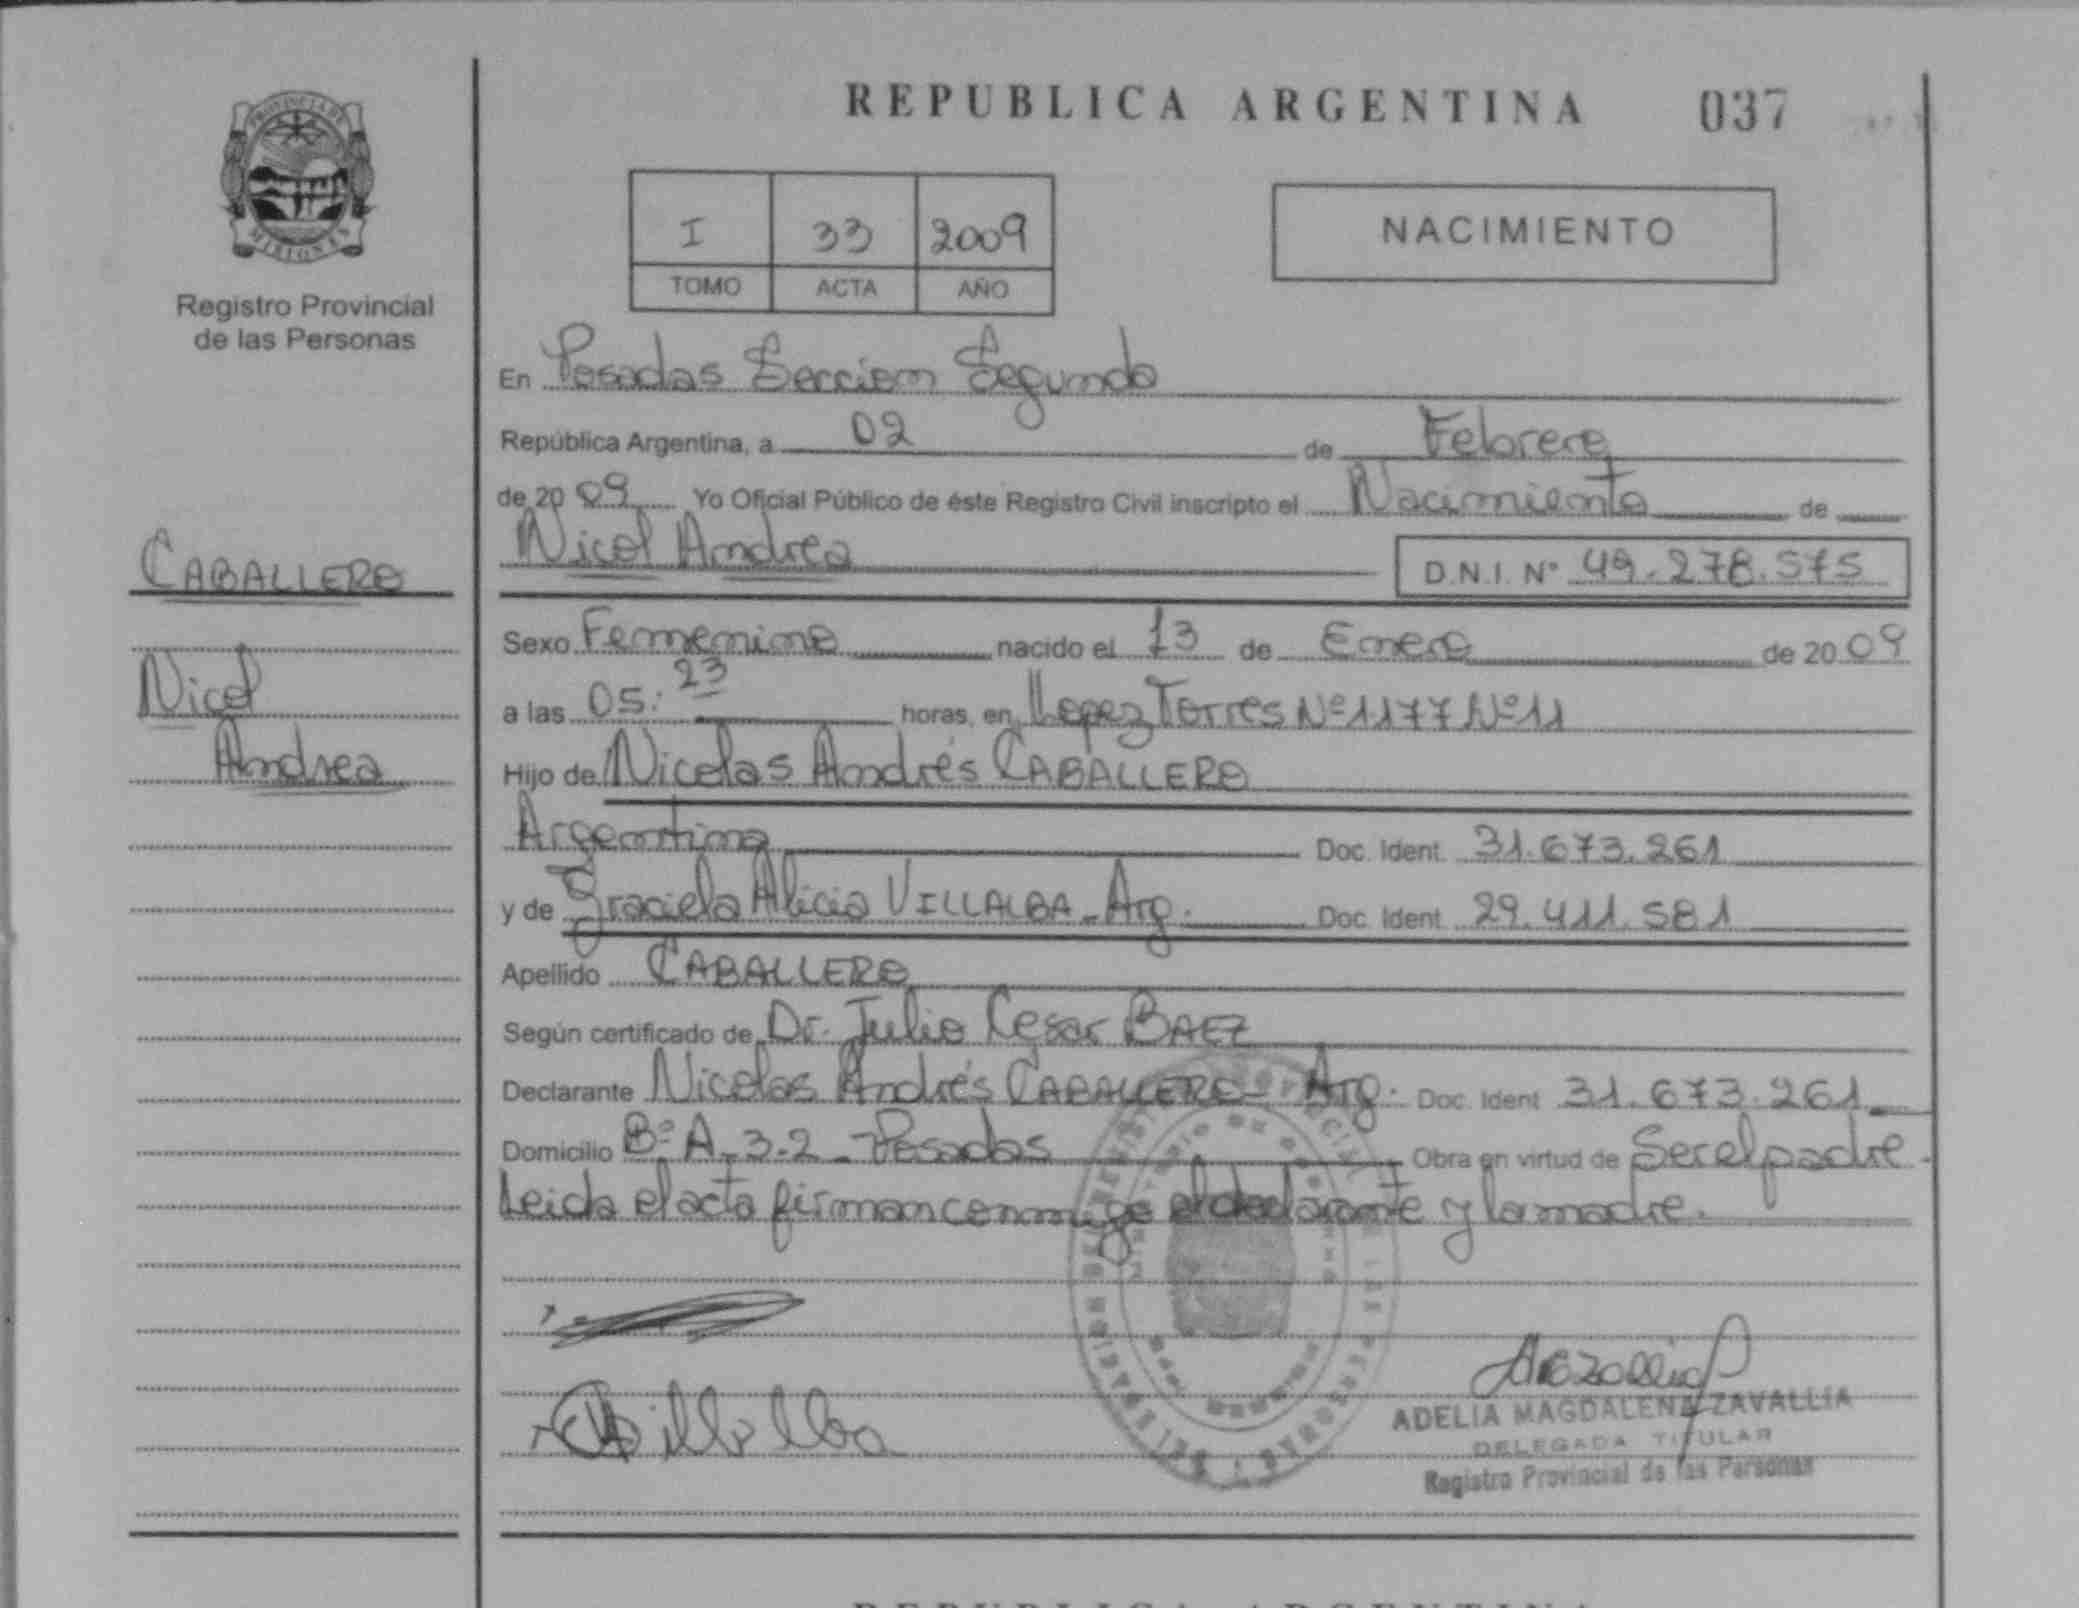 REPUBLICA ARGENTINA 037
PROVINCIA DE MISIONES
Registro Provincial
de las Personas
I 33 2009
TOMO ACTA AÑO
NACIMIENTO
En Posadas Seccion Segunda
República Argentina, a 02 de Febrero
de 2009 Yo Oficial Público de éste Registro Civil inscripto el Nacimiento de
Nicol Andrea D.N.I. Nº 49.278.575
CABALLERO
Nicol
Andrea
Sexo Femenino nacido el 13 de Enero de 2009
a las 05:23 horas, en Lopez Torres Nº 1177 Nº 11
Hijo de Nicolas Andrés CABALLERO
Argentino Doc. Ident. 31.673.261
y de Graciela Alicia VILLALBA - Arg. Doc. Ident. 29.411.581
Apellido CABALLERO
Según certificado de Dr. Julio Cesar BAEZ
Declarante Nicolas Andrés CABALLERO - Arg. Doc. Ident 31.673.261
Domicilio Bº A-3-2 - Posadas Obra en virtud de Ser el padre.
Leida el acta firman conmigo el declarante y la madre.
Villalba
ADELIA MAGDALENA ZAVALLIA
DELEGADA TITULAR
Registro Provincial de las Personas
REPUBLICA ARGENTINA